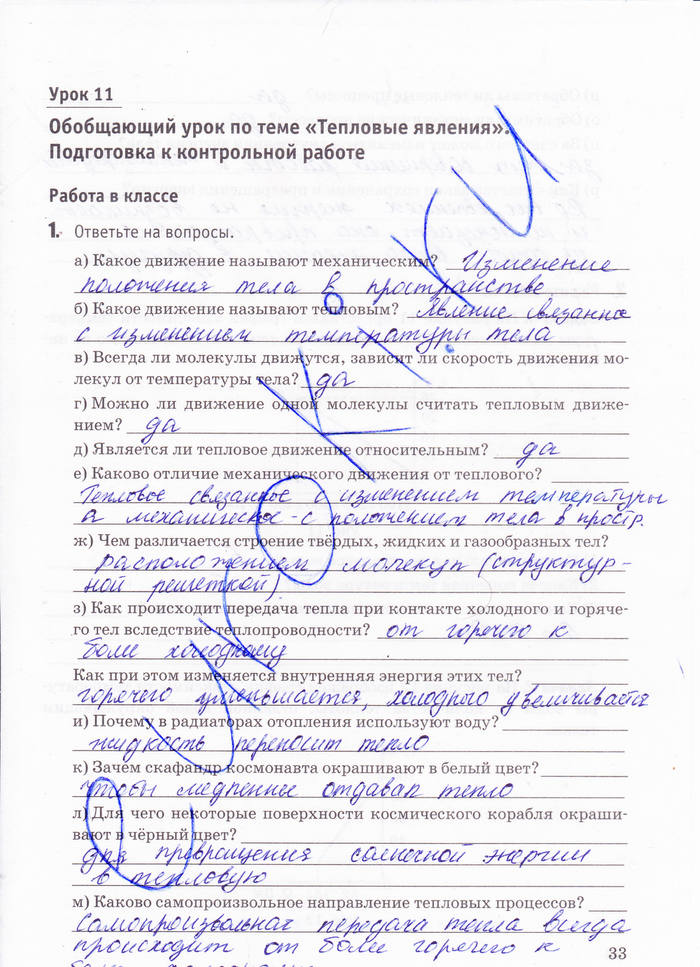 Урок 11
Обобщающий урок по теме «Тепловые явления».
Подготовка к контрольной работе
Работа в классе
1. Ответьте на вопросы.
а) Какое движение называют механическим? Изменение
положения тела в пространстве
б) Какое движение называют тепловым? Явление связанное
с изменением температуры тела
в) Всегда ли молекулы движутся, зависит ли скорость движения мо-
лекул от температуры тела? да
г) Можно ли движение одной молекулы считать тепловым движе-
нием? да
д) Является ли тепловое движение относительным? да
е) Каково отличие механического движения от теплового?
Тепловое связанное с изменением температуры
а механическое - с положением тела в простр.
ж) Чем различается строение твёрдых, жидких и газообразных тел?
расположением молекул (структур-
ной решеткой)
з) Как происходит передача тепла при контакте холодного и горяче-
го тел вследствие теплопроводности? от горячего к
более холодному
Как при этом изменяется внутренняя энергия этих тел?
горячего уменьшается, холодного увеличивается
и) Почему в радиаторах отопления используют воду?
жидкость переносит тепло
к) Зачем скафандр космонавта окрашивают в белый цвет?
чтобы медленнее отдавал тепло
л) Для чего некоторые поверхности космического корабля окраши-
вают в чёрный цвет?
для превращения солнечной энергии
в тепловую
м) Каково самопроизвольное направление тепловых процессов?
самопроизвольная передача тепла всегда
происходит от более горячего к
33